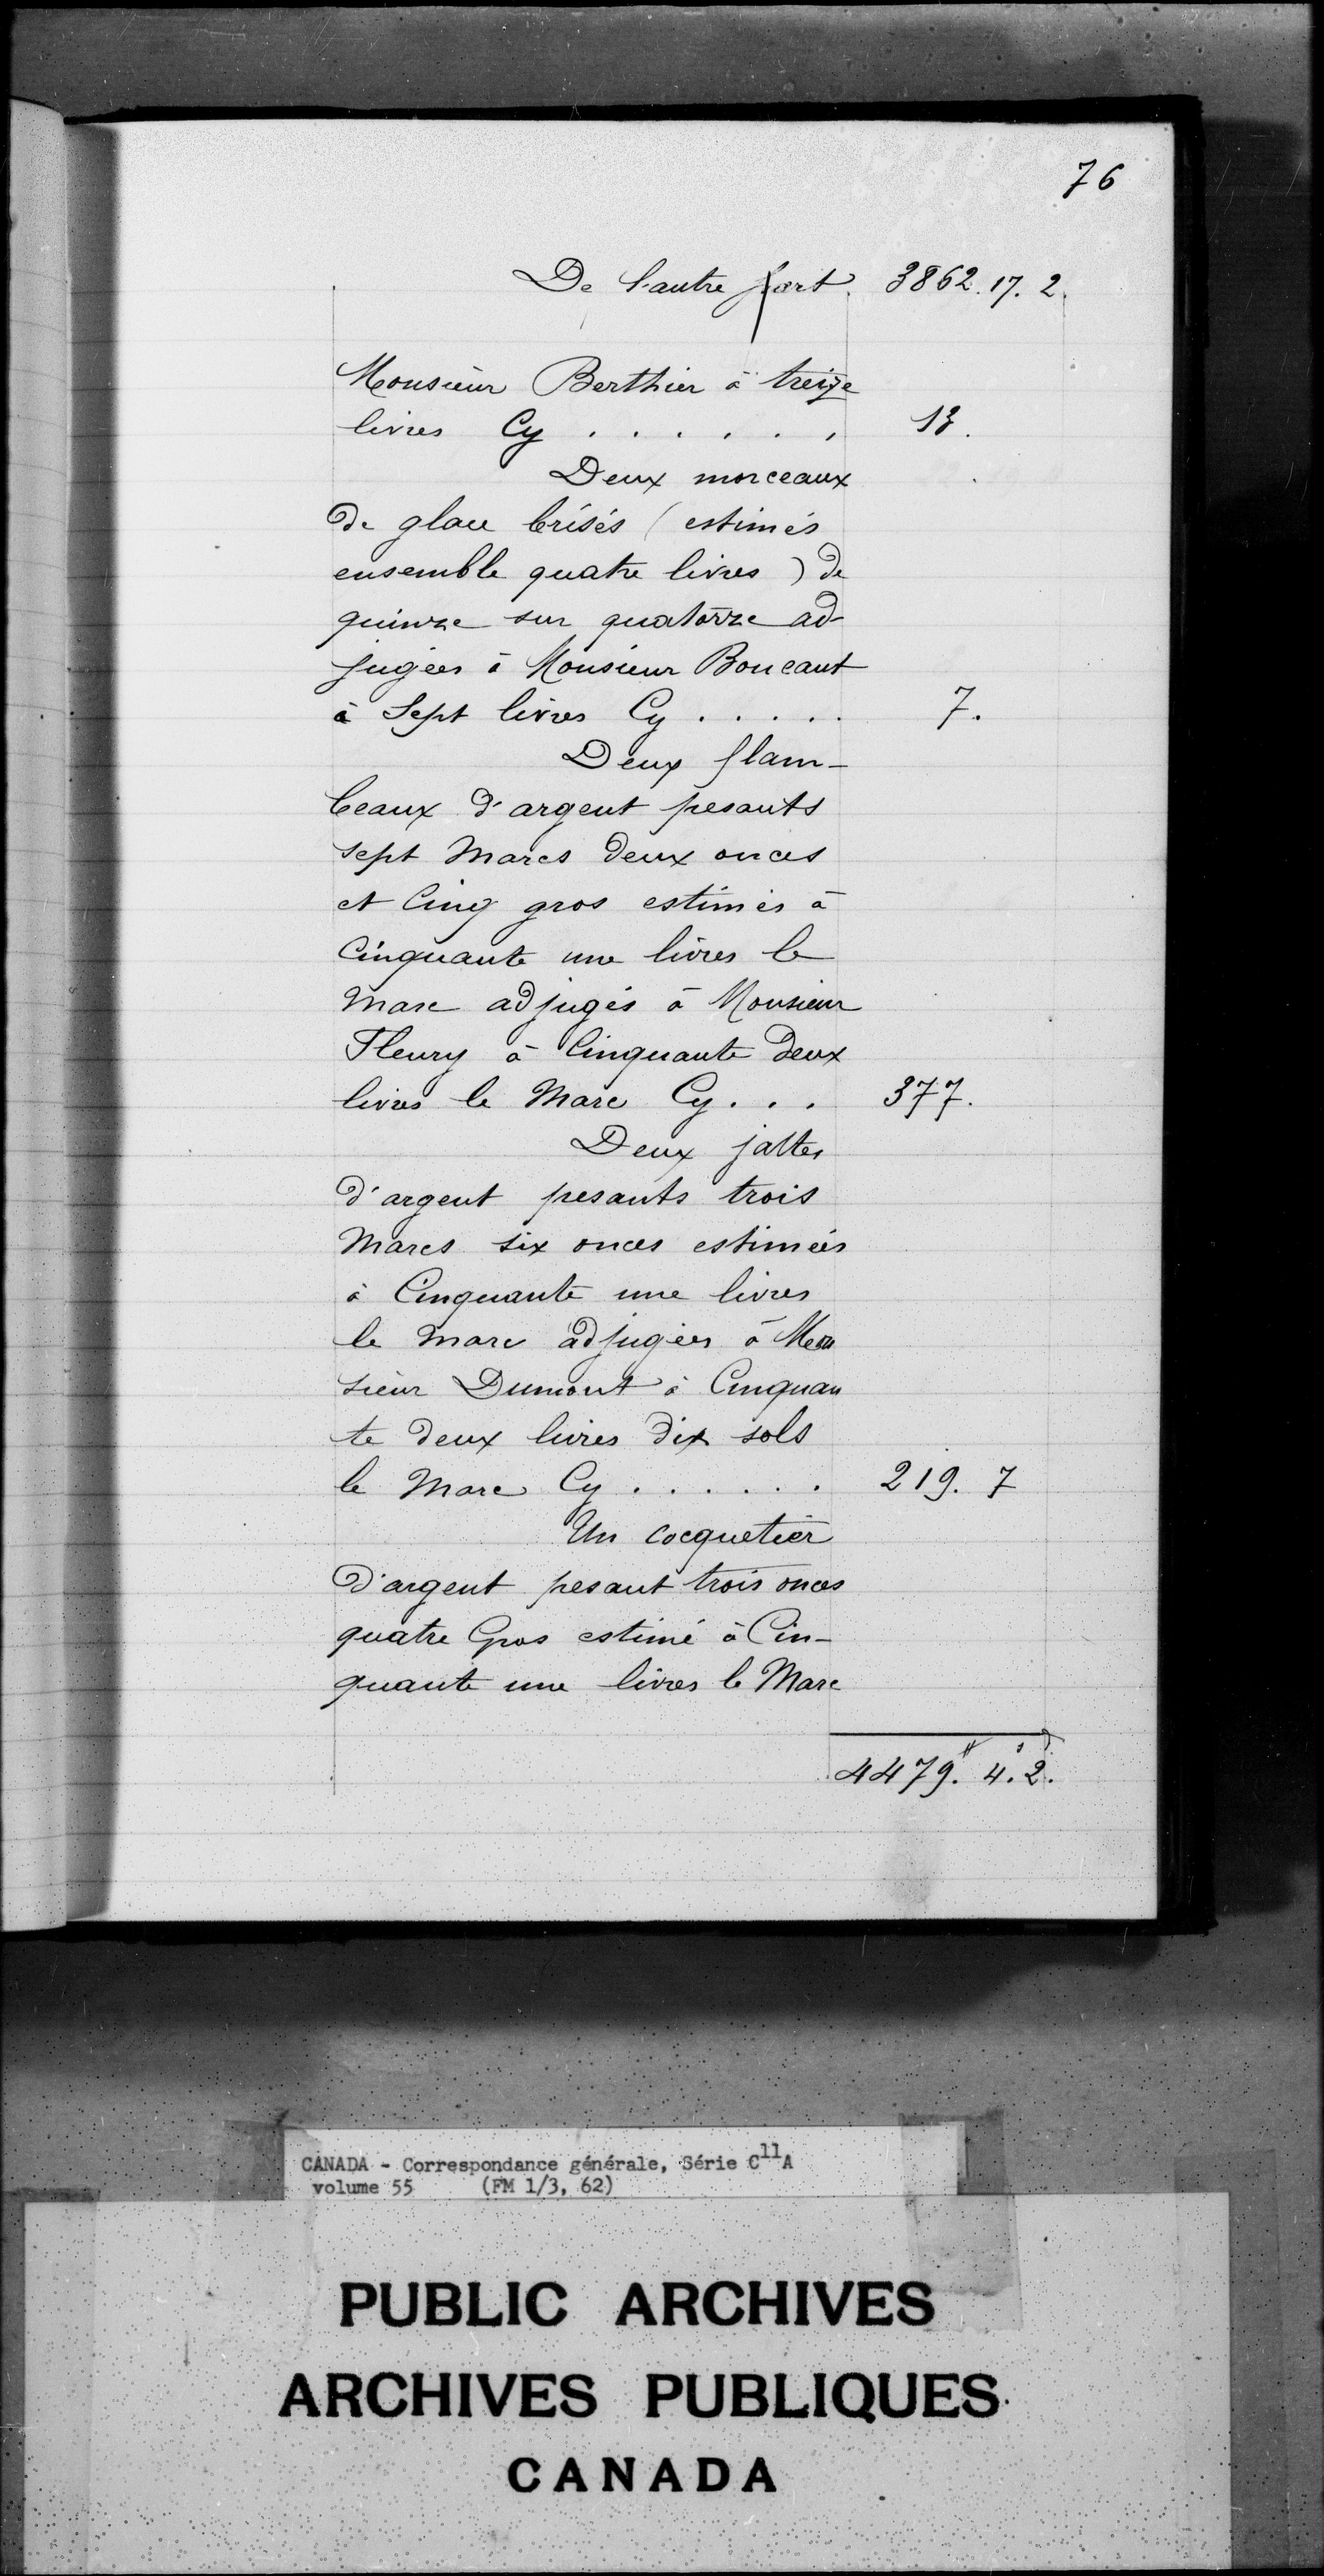 76
De l'autre part. 3862.17.2.
Monsieur Berthier à treize
livres Cy . . . . . . 13.
Deux morceaux
de glace brisés (estimés
ensemble quatre livres) de
quinze sur quatorze ad-
jugées à Monsieur Boucaut
à Sept livres Cy . . . . . 7.
Deux flam-
beaux d'argent pesants
sept Marcs deux onces
et Cinq gros estimés à
Cinquante une livres le
Marc adjugés à Monsieur
Fleury à Cinquante deux
livres le Marc Cy . . . 377.
Deux jattes
d'argent pesants trois
Marcs six onces estimées
à Cinquante une livres
le Marc adjugées à Mon
sieur Dumont à Cinquan
te deux livres dix sols
le Marc Cy . . . . . . 219. 7
Un cocquetier
d'argent pesant trois onces
quatre Gros estimé à Cin-
quante une livres le Marc
4479.# 4.s 2.d
CANADA - Correspondance générale, Série C11A
volume 55 (FM 1/3, 62)
PUBLIC ARCHIVES
ARCHIVES PUBLIQUES
CANADA